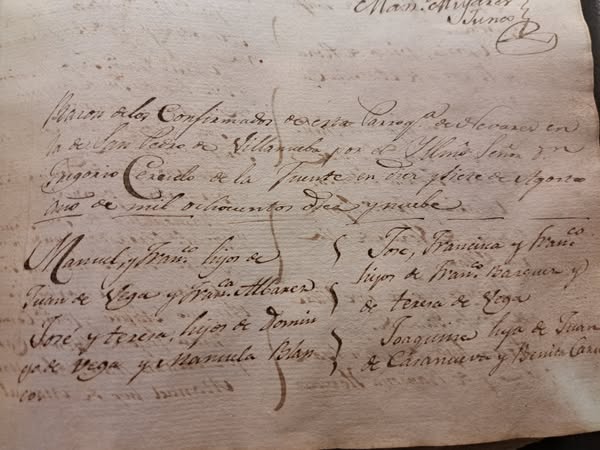 Man.l Miyares
Junco
Razon de los Confirmados de esta Parroq.a de Nevares en
la de San Pedro de Villanueba por el Ylmo Señor Dn
Gregorio Ceruelo de la Fuente en diez y siete de Agosto
año de mil ochocientos diez y nuebe
Manuel, y Fran.co hijos de
Juan de Vega y Fran.ca Albarez
José y teresa, hijos de Domin
go de Vega y Manuela Blan
co
Jose, Francisca y Fran.co
hijos de Fran.co Bazquez y
de teresa de Vega
Joaquina hija de Juan
de Casanueva y Benita